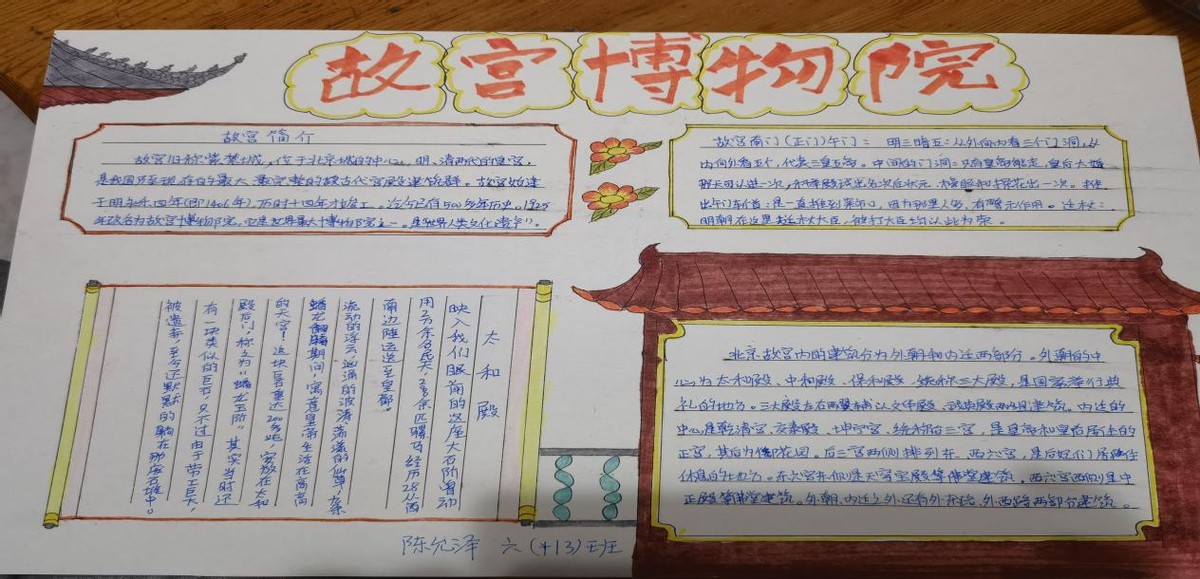 故宫博物院
故宫简介
故宫旧称紫禁城,位于北京城的中心,明、清两代的皇宫,
是我国乃至现存的最大、最完整的古代宫殿建筑群。故宫始建
于明永乐四年(即1406年)历时十四年才竣工。迄今已有500多年历史。1925
年改名为故宫博物院,也是世界最大博物院之一。是世界人类文化遗产。
故宫南门(正门)午门: 明三暗五:从外向内看三个门洞,从
内向外看五个,代表三皇五帝。中间的门洞:只有皇帝能走,皇后大婚
那天可以进一次,殿试出名次后状元、榜眼和探花出一次。推
出午门斩首:是一直推到菜市口,因为那里人多,有警示作用。廷杖:
明朝在这里廷杖大臣,被打大臣均以此为荣。
太和殿
映入我们眼前的这座大石阶曾动
用2万余名民夫,2000余匹骡马经历28从西
南边陲运送至皇都。
流动的浮云,汹涌的波涛,荡漾的仙草,九条
蟠龙翱腾期间,寓意皇帝生活在高高
的天宫!这块巨石重达200多吨,安放在太和
殿后门,称之为“蟠龙玉阶”其实当时还
有一块类似的巨石,只不过由于劳工巨大,
被遗弃,至今还默默的躺在那房石堆中。
北京故宫内的建筑分为外朝和内廷两部分。外朝的中
心为太和殿、中和殿、保和殿,统称三大殿,是国家举行典
礼的地方。三大殿左右两翼辅以文华殿、武英殿两组建筑。内廷的
中心是乾清宫、交泰殿、坤宁宫,统称后三宫,是皇帝和皇后居住的
正宫,其后为御花园。后三宫两侧排列东、西六宫,是后妃们居住
休息的地方。东六宫东侧是天穹宝殿等佛堂建筑,西六宫西侧是中
正殿等佛堂建筑。外朝、内廷之外还有外东路、外西路两部分建筑。
陈允泽 六(+13)班